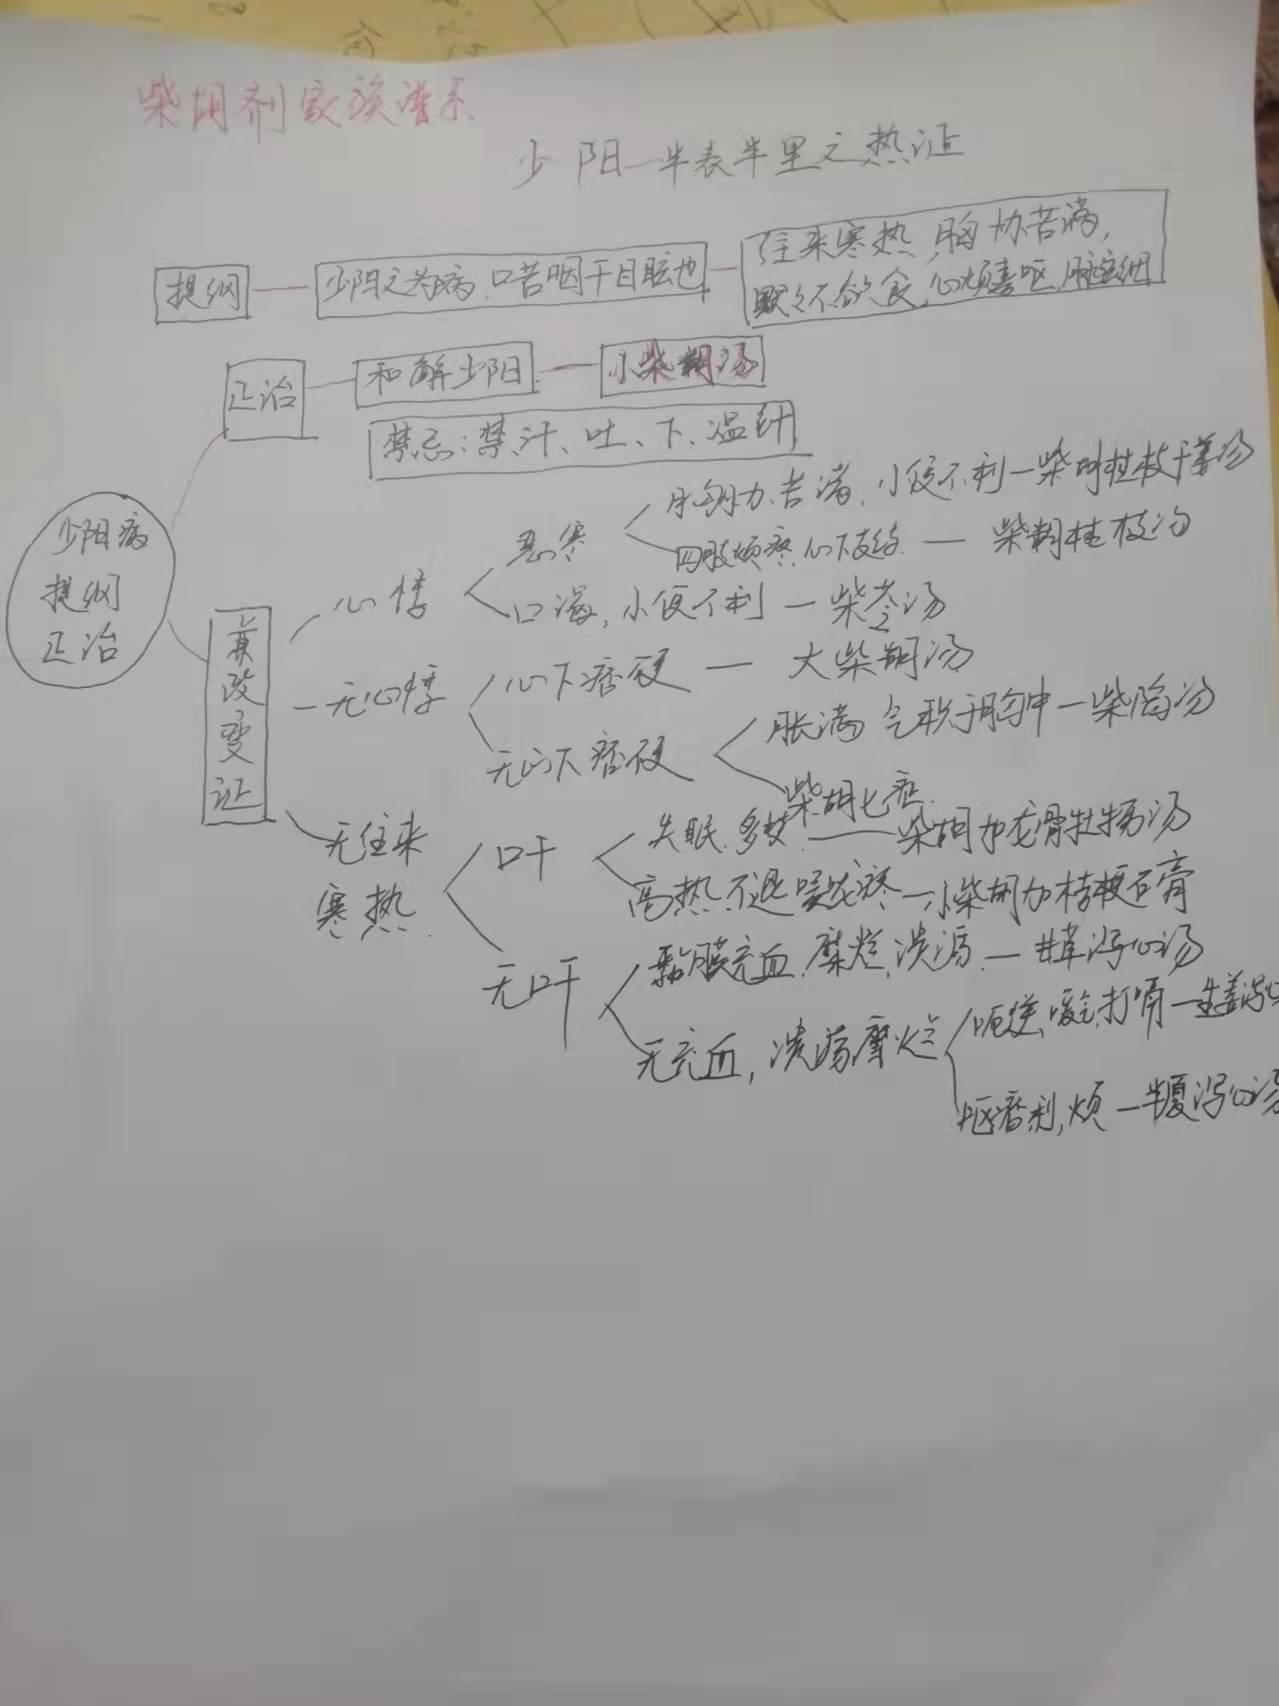 柴胡剂家族谱系
少阳—半表半里之热证
提纲—少阳之为病,口苦咽干目眩也—往来寒热,胸胁苦满,
默々不欲食,心烦喜呕,脉弦细
正治—和解少阳—小柴胡汤
禁忌:禁汗、吐、下、温针
少阳病
提纲
正治
兼改变证
心悸
恶寒
胸胁苦满,小便不利—柴胡桂枝干姜汤
四肢烦疼,心下支结—柴胡桂枝汤
口渴,小便不利—柴苓汤
无心悸
心下痞硬—大柴胡汤
无心下痞硬
胀满 气积于胸中—柴陷汤
柴胡七症
无往来
寒热
口干
失眠.多梦—柴胡加龙骨牡蛎汤
高热不退 咽疼—小柴胡加桔梗石膏
无口干
黏膜充血.糜烂.溃疡—甘草泻心汤
无充血,溃疡糜烂
呃逆,嗳气,打嗝—生姜泻心
呕痞利,烦—半夏泻心汤